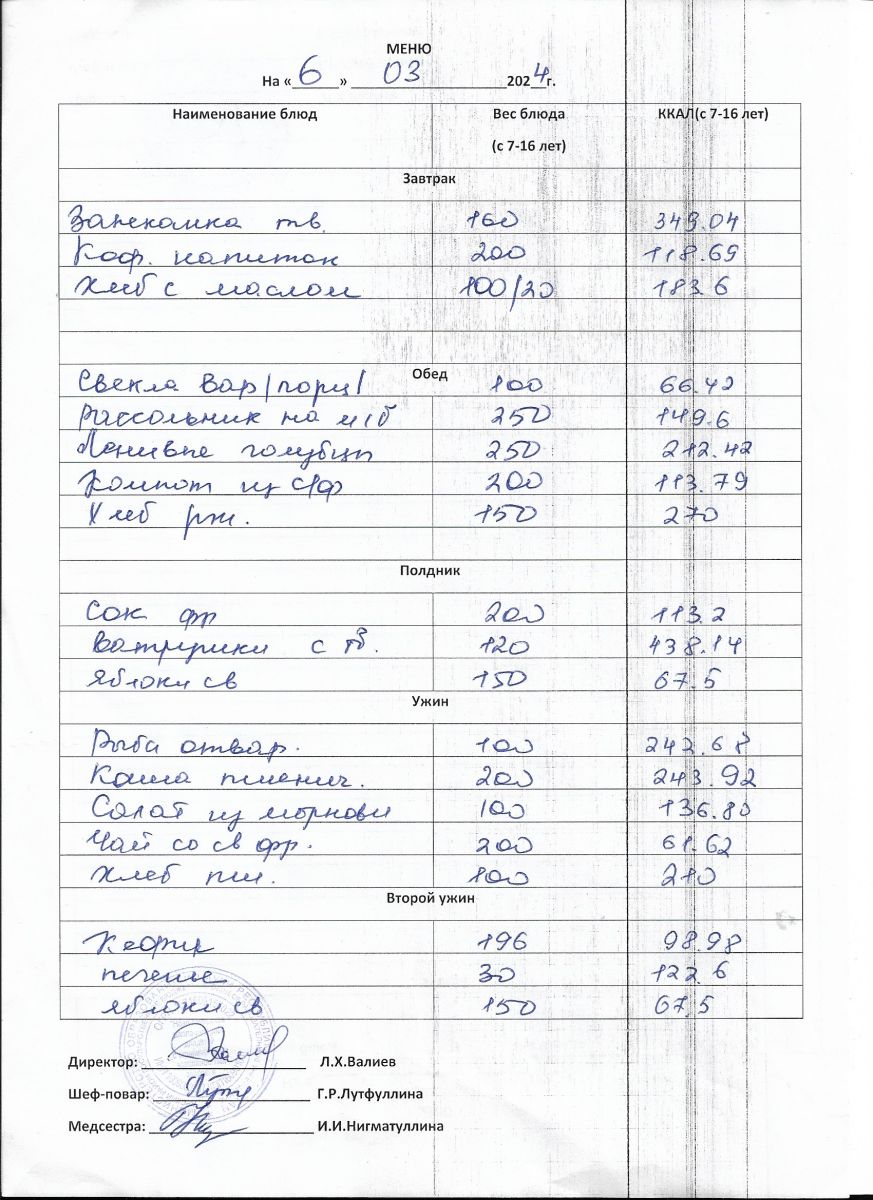 МЕНЮ
На «6» 03 2024г.
Наименование блюд Вес блюда (с 7-16 лет) ККАЛ(с 7-16 лет)
Завтрак
Запеканка тв. 160 349.04
Коф. напиток 200 118.69
Хлеб с маслом 100/20 183.6
Обед
Свекла вар/порц/ 100 66.42
Рассольник на м/б 250 149.6
Ленивые голубцы 250 212.42
Компот из с/ф 200 113.79
Хлеб рж. 150 270
Полдник
Сок фр 200 113.2
Ватрушки с тв. 120 438.14
Яблоки св 150 67.5
Ужин
Рыба отвар. 100 242.68
Каша пшенич. 200 243.92
Салат из моркови 100 136.80
Чай со св фр. 200 61.62
Хлеб пш. 100 210
Второй ужин
Кефир 196 98.98
печенье 30 122.6
яблоки св 150 67.5
Директор: Л.Х.Валиев
Шеф-повар: Г.Р.Лутфуллина
Медсестра: И.И.Нигматуллина